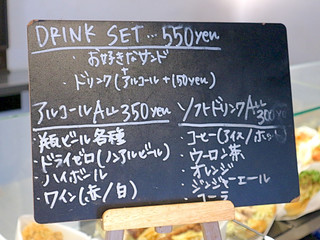 DRINK SET… 550yen
・お好きなサンド
+
・ドリンク(アルコール+150yen)
アルコールALL 350yen
・瓶ビール各種
・ドライゼロ(ノンアルビール)
・ハイボール
・ワイン(赤/白)
ソフトドリンクALL 300yen
・コーヒー(アイス/ホット)
・ウーロン茶
・オレンジ
・ジンジャーエール
・コーラ